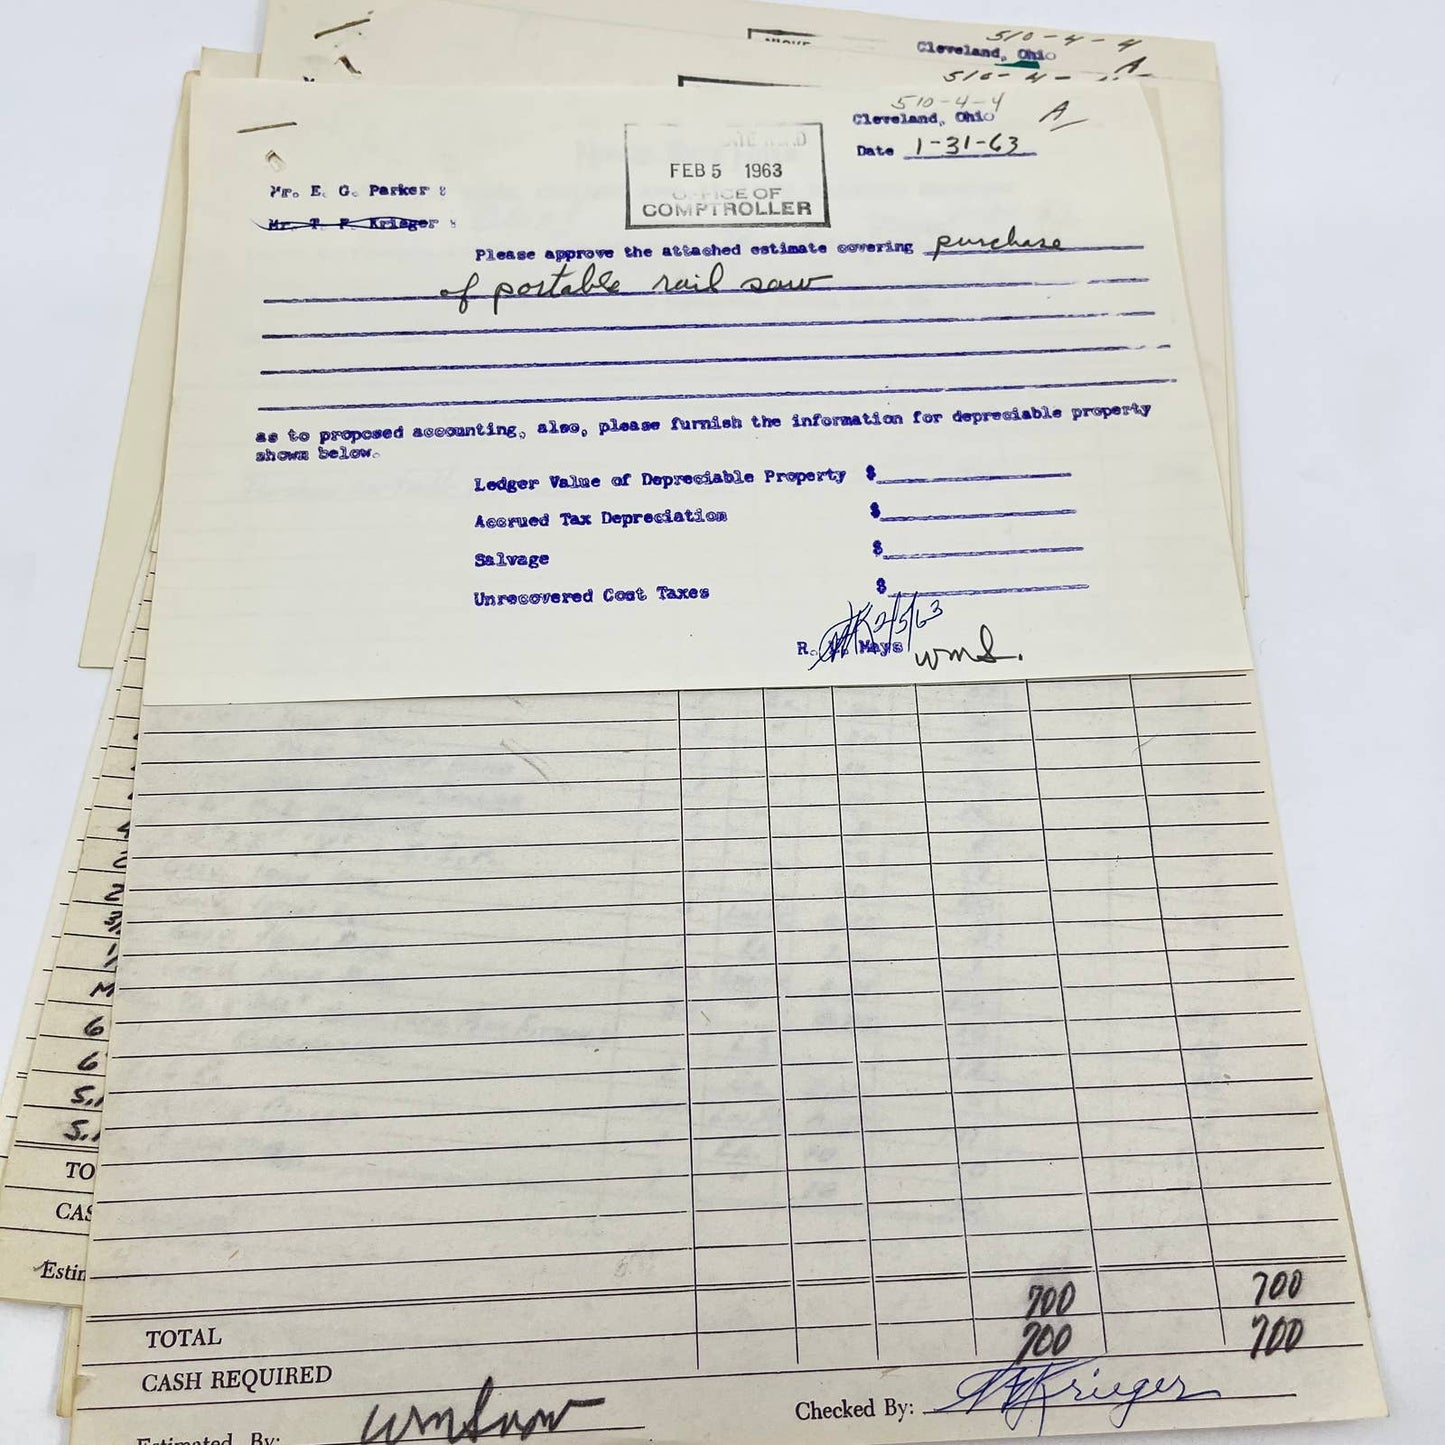 510-4-4
Cleveland, Ohio
A
510-4-
510-4-4
Cleveland, Ohio
A
Date 1-31-63
FEB 5 1963
OFFICE OF
COMPTROLLER
Mr. E. G. Parker :
Mr. T. F. Krieger :
Please approve the attached estimate covering purchase
of portable rail saw
as to proposed accounting, also, please furnish the information for depreciable property
shown below.
Ledger Value of Depreciable Property $
Accrued Tax Depreciation $
Salvage $
Unrecovered Cost Taxes $
2/5/63
R. Mays WMS.
M
6
6
5.
5.
TO
CAS
Estim
700 700
TOTAL 700 700
CASH REQUIRED
Estimated By:
Checked By: Krieger